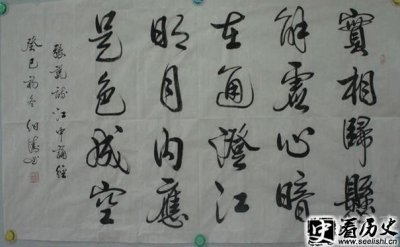 實相歸縣
解虛心暗
在通澄江
明月內應
是色成空
張說詩江中誦經
癸巳初冬
看历史
www.seelishi.cn